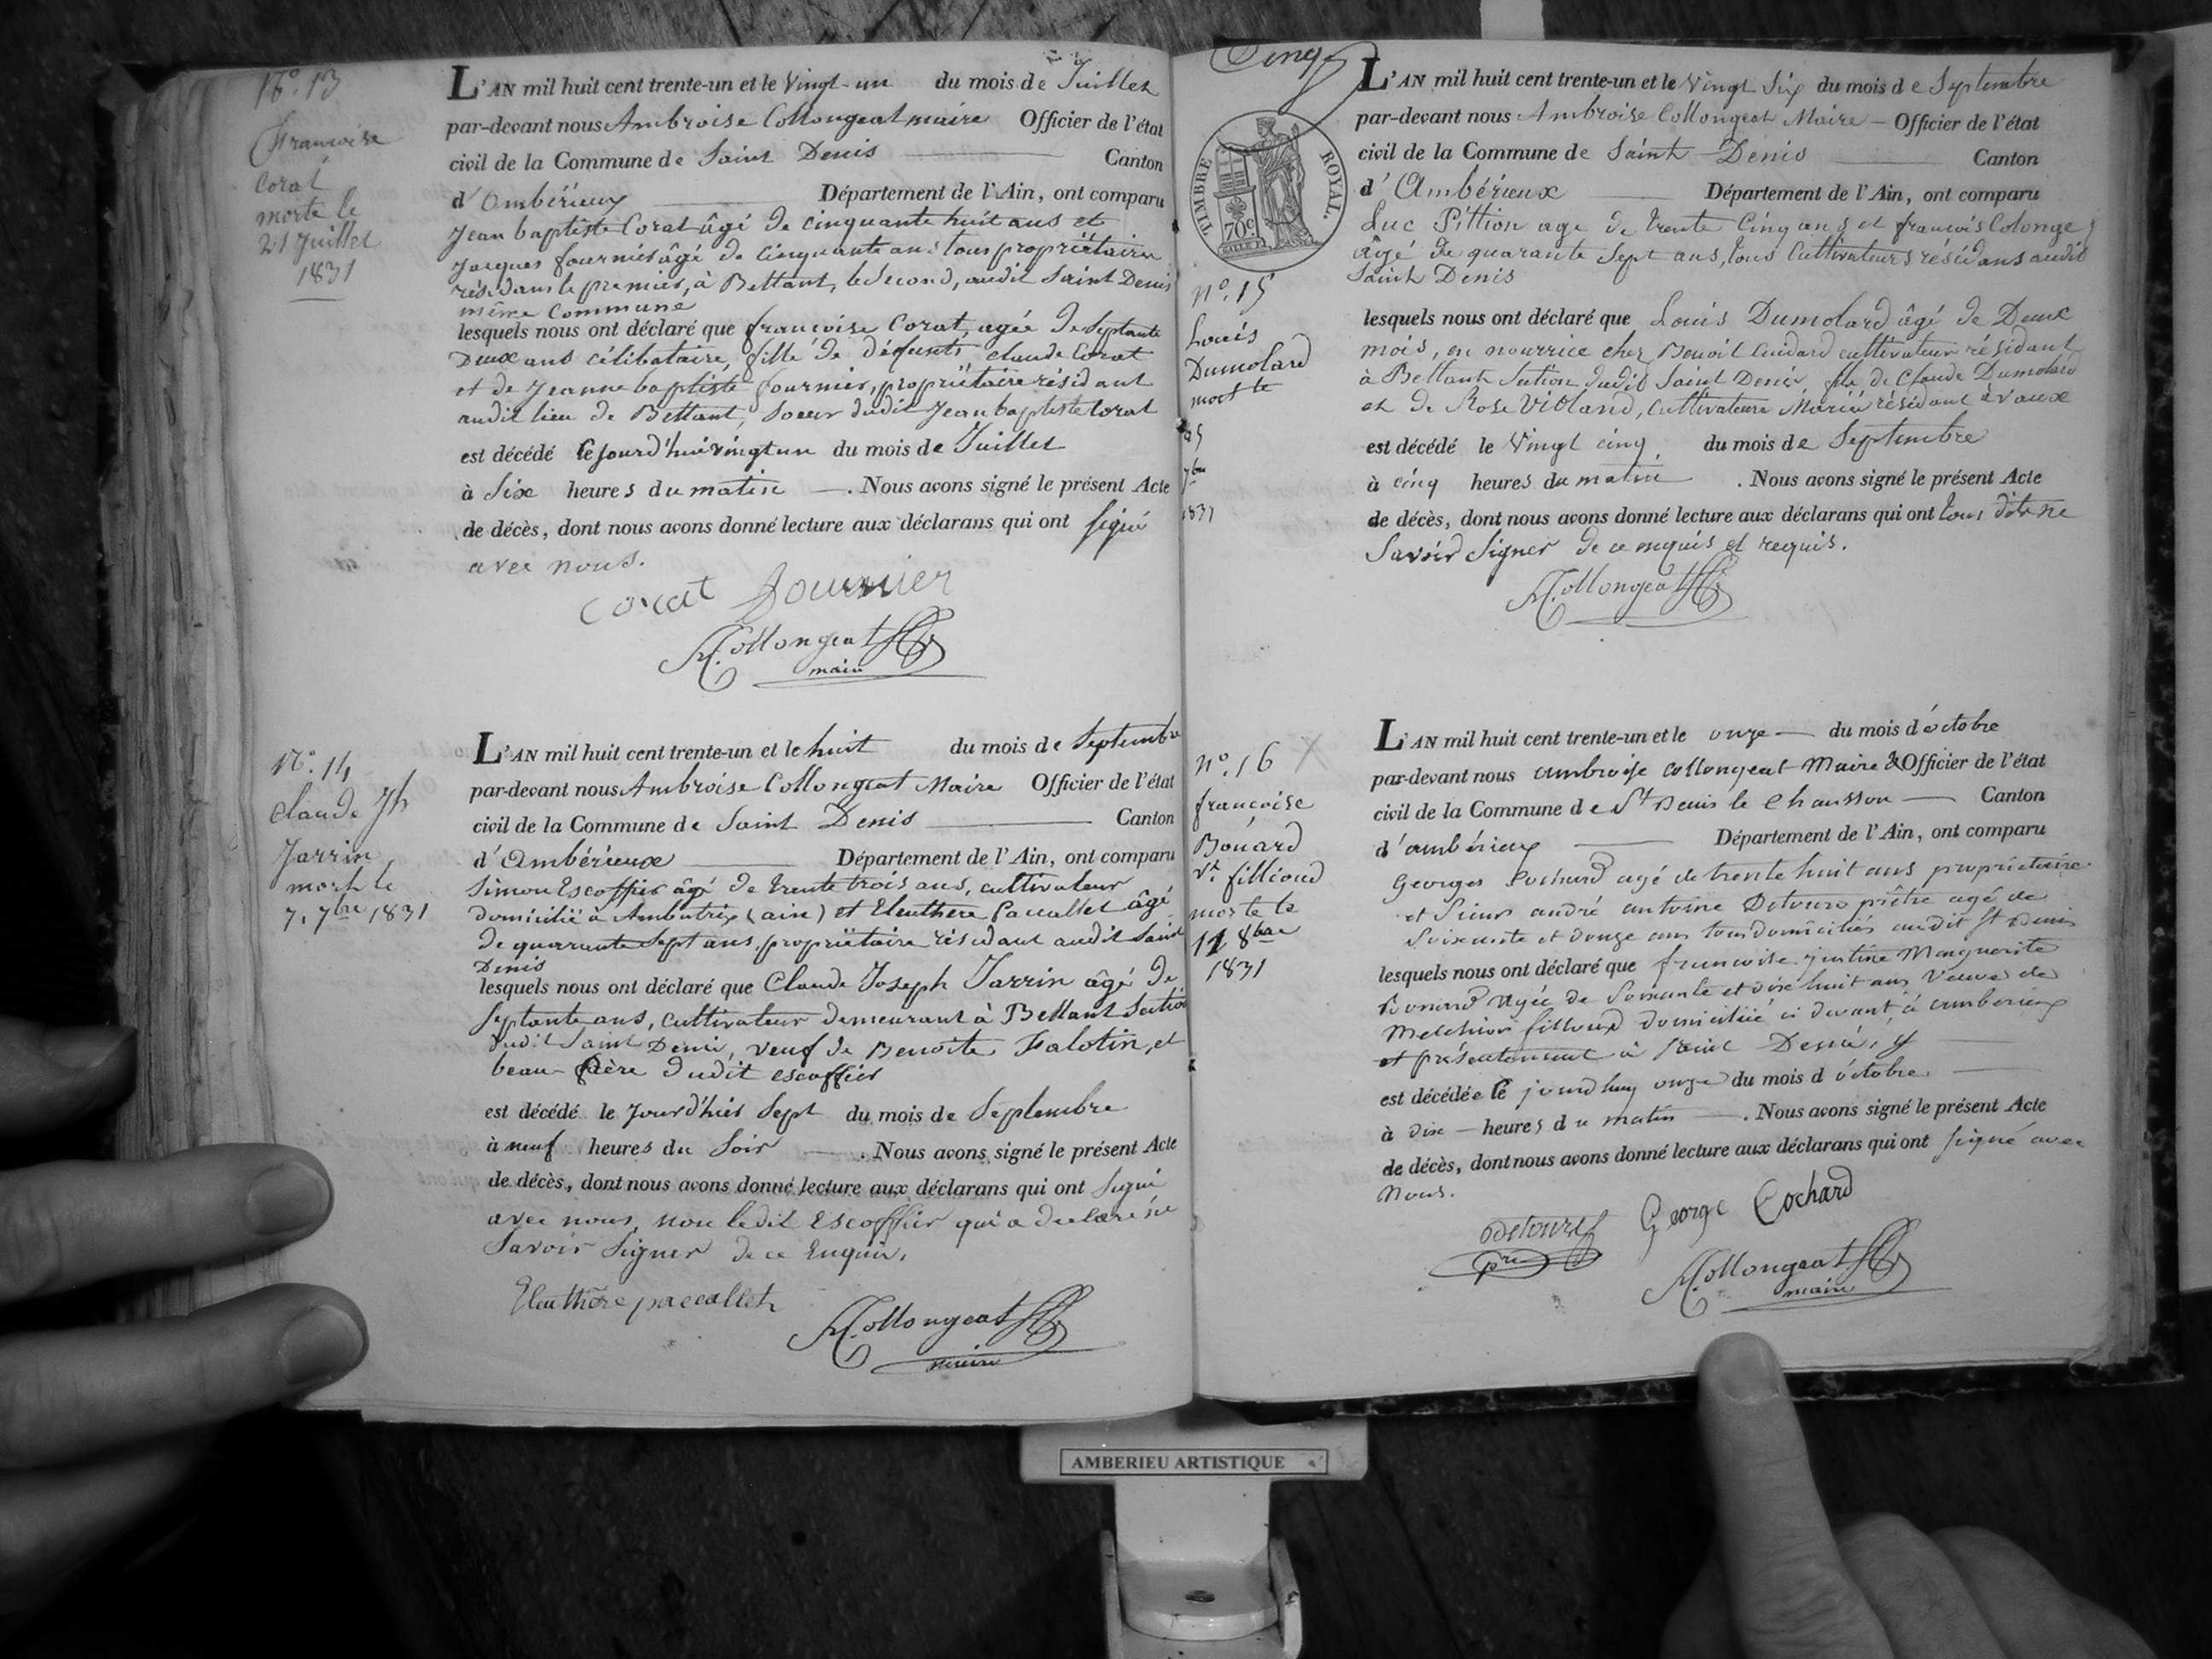 N.o 13
Francoise
Corat
morte le
21 Juillet
1831
L'AN mil huit cent trente-un et le Vingt-un du mois de Juillet
par-devant nous Ambroise Collongeat maire Officier de l'état
civil de la Commune de Saint Denis Canton
d'Ambérieux Département de l'Ain, ont comparu
Jean baptiste Corat âgé de cinquante huit ans et
Jacques fournier âgé de Cinquante ans tous propriétaires
résidans le premier, à Bettant, le Second, audit Saint Denis
même Commune
lesquels nous ont déclaré que françoise Corat, agée de Septante
Deux ans célibataire, fille de défunts Claude Corat
et de Jeanne baptiste fournier, propriétaire résidant
audit lieu de Bettant, Soeur dudit Jean baptiste Corat
est décédé le jourd'hui vingt un du mois de Juillet
à Six heures du matin. Nous avons signé le présent Acte
de décès, dont nous avons donné lecture aux déclarans qui ont signé
avec nous.
Corat fournier
A. Collongeat
maire
N.o 14
Claude Jh
Jarrin
mort le
7. 7bre 1831
L'AN mil huit cent trente-un et le huit du mois de Septembre
par-devant nous Ambroise Collongeat Maire Officier de l'état
civil de la Commune de Saint Denis Canton
d'Ambérieux Département de l'Ain, ont comparu
Simon Escoffier âgé de trente trois ans, cultivateur
domicilié à Ambutrix (ain) et Eleuthere Paccallet âgé
de quarante Sept ans, propriétaire résidant audit Saint
Denis
lesquels nous ont déclaré que Claude Joseph Jarrin âgé de
Septante ans, cultivateur demeurant à Bettant Section
dudit Saint Denis, veuf de Benoite Falotin, et
beau-père dudit escoffier
est décédé le Jourd'hier Sept du mois de Septembre
à neuf heures du Soir. Nous avons signé le présent Acte
de décès, dont nous avons donné lecture aux déclarans qui ont Signé
avec nous, non ledit Escoffier qui a déclaré ne
Savoir Signer de ce Enquis.
Eleuthère paccallet
A. Collongeat
maire
TIMBRE ROYAL.
70c.
L'AN mil huit cent trente-un et le Vingt Six du mois de Septembre
par-devant nous Ambroise Collongeat Maire Officier de l'état
civil de la Commune de Saint Denis Canton
d'Ambérieux Département de l'Ain, ont comparu
Luc Pittion age de trente Cinq ans et françois Colonge
âgé de quarante Sept ans, tous Cultivateurs résidans audit
Saint Denis
no. 15
Louis
Dumolard
mort le
25
7bre
1831
lesquels nous ont déclaré que Louis Dumolard âgé de Deux
mois, en nourrice chez Benoit cultivateur résidant
à Bettant Section dudit Saint Denis, fils de Claude Dumolard
et de Rose Violand, Cultivateurs Mariés résidant à Vaux
est décédé le Vingt cinq du mois de Septembre
à cinq heures du matin. Nous avons signé le présent Acte
de décès, dont nous avons donné lecture aux déclarans qui ont tous dit ne
Savoir Signer de ce enquis et requis.
A. Collongeat
no. 16 X
françoise
Bouard
Ve fillioud
morte le
11 8bre
1831
L'AN mil huit cent trente-un et le onze du mois d'octobre
par-devant nous ambroise collongeat Maire & Officier de l'état
civil de la Commune de St Denis le Chausson Canton
d'ambérieux Département de l'Ain, ont comparu
Georges Cochard agé de trente huit ans propriétaire
et Sieur andré antoine Detours prêtre agé de
Soixante et douze ans tous domiciliés audit St Denis
lesquels nous ont déclaré que francoise justine Marguerite
Bouard Agée de Soixante et dix huit ans Veuve de
Melchior fillioud domiciliée ci devant à amberieux
et présentement à Saint Denis, y
est décédée le jourdhuy onze du mois d'octobre
à dix heures du matin. Nous avons signé le présent Acte
de décès, dont nous avons donné lecture aux déclarans qui ont signé avec
Nous.
Detours George Cochard
pre
A. Collongeat
maire
AMBERIEU ARTISTIQUE